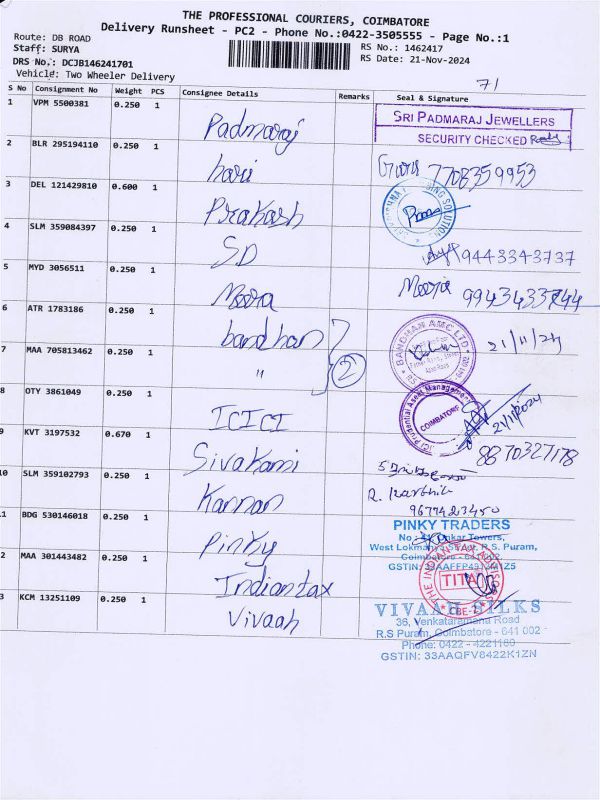 THE PROFESSIONAL COURIERS, COIMBATORE
Delivery Runsheet - PC2 - Phone No.:0422-3505555 - Page No.:1
Route: DB ROAD
Staff: SURYA
DRS No.: DCJB146241701
Vehicle: Two Wheeler Delivery
RS No.: 1462417
RS Date: 21-Nov-2024
71
S No Consignment No Weight PCS Consignee Details Remarks Seal & Signature
1 VPM 5500381 0.250 1 Padmaraj
SRI PADMARAJ JEWELLERS
SECURITY CHECKED
2 BLR 295194110 0.250 1 hari 7708359953
3 DEL 121429810 0.600 1 Prakash
4 SLM 359084397 0.250 1 SD 9443343737
5 MYD 3056511 0.250 1 Meera
6 ATR 1783186 0.250 1 bandhan
BANDHAN AMC LTD
21/11/24
7 MAA 705813462 0.250 1 " 2
8 OTY 3861049 0.250 1 ICICI
ICICI Prudential Asset Management
COIMBATORE
21/11/2024
8870327178
9 KVT 3197532 0.670 1 Sivakami
10 SLM 359102793 0.250 1 Kannan
R. Karthik
9677423450
11 BDG 530146018 0.250 1 Pinky
PINKY TRADERS
West Lokmanya Street, R.S. Puram,
Coimbatore
12 MAA 301443482 0.250 1 Indiantax
THE INDIAN TAX ADVISORS
TITA
CBE-2
13 KCM 13251109 0.250 1 Vivaah
VIVAAH SILKS
36, Venkataramana Road
R.S Puram, Coimbatore - 641 002
Phone: 0422 - 4221180
GSTIN: 33AAQFV8422K1ZN